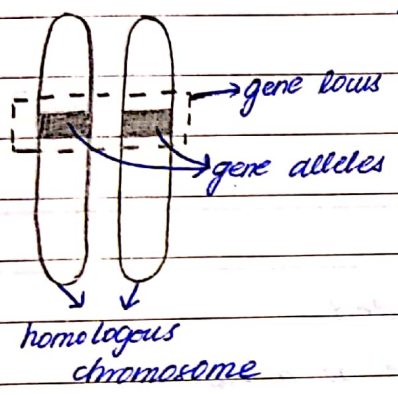 gene locus
gene alleles
homologous
chromosome